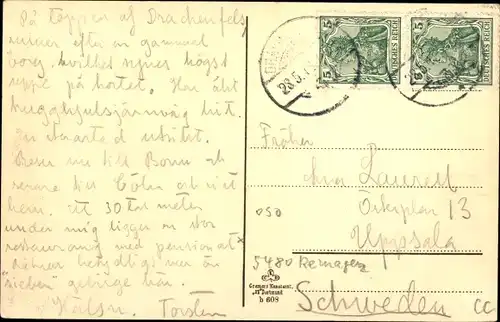 På toppen af Drachenfels,
ruiner efter en gammal
borg, hvilket synes högst
uppe på kortet. Har åkt
kugghjulsjärnväg hit.
utsikt.
Reser nu till Bonn och
senare till Cöln och
hem. 30 meter
under mig ligger en stor
restaurang med pensionat
gebirge här.
Hälsn. Torsten
5 5
DEUTSCHES REICH
DEUTSCHES REICH
Fröken
Anna Laurell
13
Uppsala
Schweden
050
5480 Remagen
Dortmund
b 608
CC